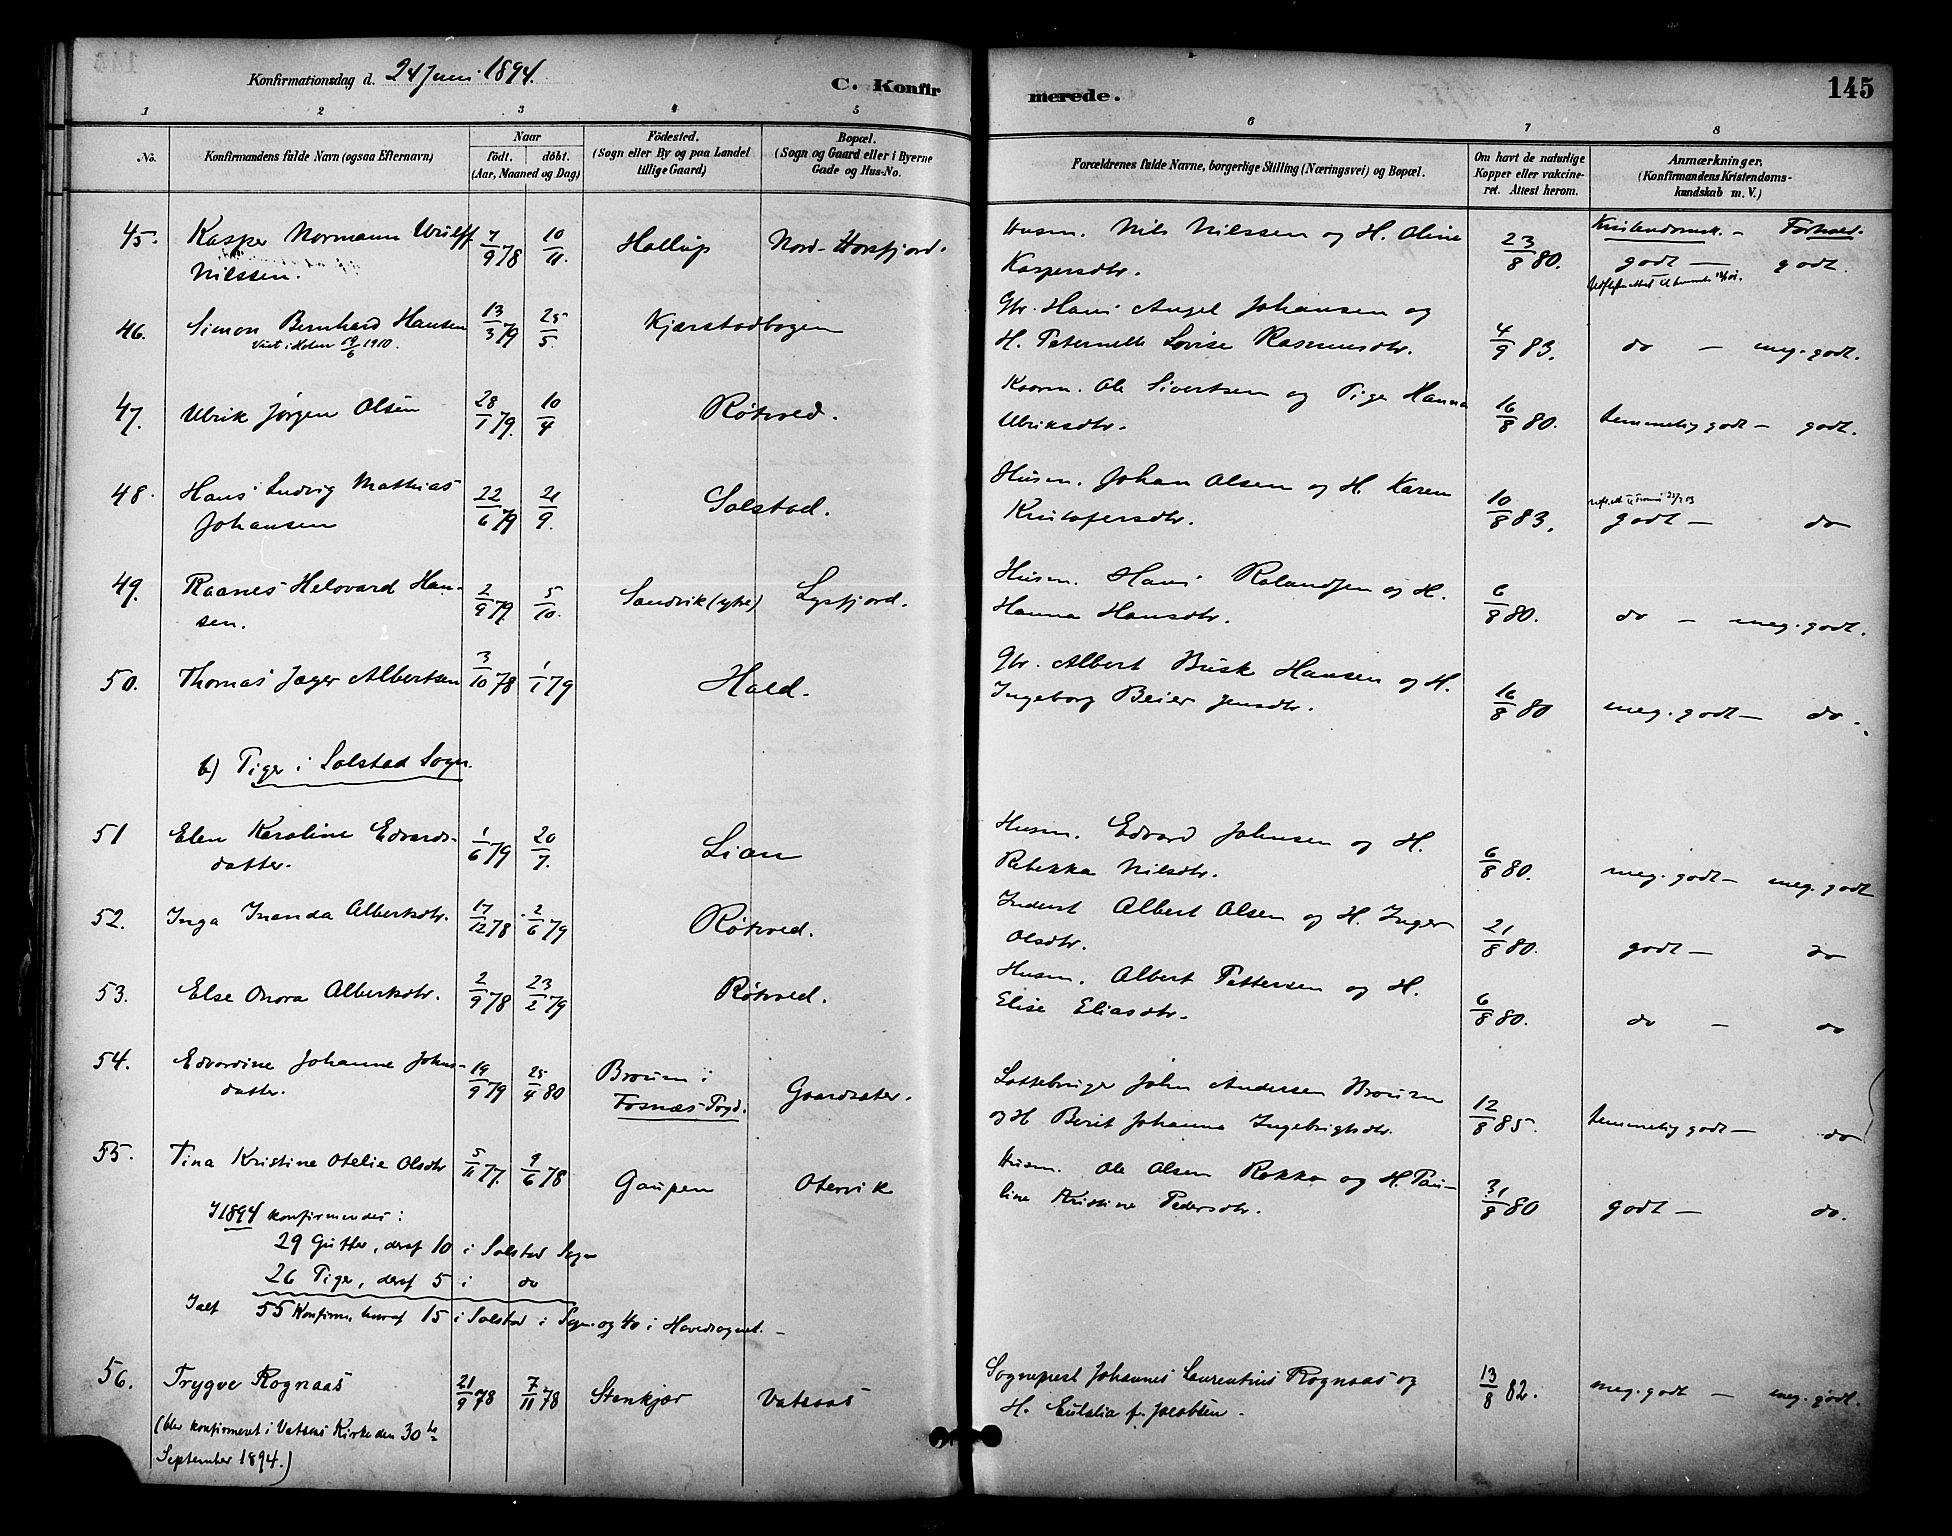 Konfirmationsdag d. 24 Juni 1894.
C. Konfirmerede.
145
1 2 3 4 5 6 7 8
No.
Konfirmandens fulde Navn (ogsaa Efternavn)
Naar
födt. döbt.
(Aar, Maaned og Dag)
Födested.
(Sogn eller By og paa Landet
tillige Gaard)
Bopæl.
(Sogn og Gaard eller i Byerne
Gade og Hus-No.
Forældrenes fulde Navne, borgerlige Stilling (Næringsvei) og Bopæl.
Om havt de naturlige
Kopper eller vakcine-
ret. Attest herom.
Anmærkninger.
(Konfirmandens Kristendoms-
kundskab m. V.)
Kristendomsk. – Forhold.
45. Kasper Normann Wulff 7/9 78 10/11. Hallup Nord-Horsfjord. Husm. Nils Nilssen og H. Oline 23/8 80. godt – godt.
Nilssen. Kaspersdtr.
46. Simon Bernhard Hansen 13/3 79 25/5. Kjærstadbogen Gbr. Hans Angel Johansen og
Viet i Kolen 19/6 1910. H. Peternelle Lovise Rasmusdtr. 4/9 83. do – meg. godt.
47. Ulrik Jørgen Olsen 28/1 79. 10/4 Røtvold. Kaarm. Ole Sivertsen og Pige Hanna
Ulriksdtr. 16/8 80. temmelig godt – godt.
48. Hans Ludvig Mathias 22/6 79 21/9. Solstad. Husm. Johan Olsen og H. Karen
Johansen Kristofersdtr. 10/8 83. godt – do
49. Raanes Helovard Han- 2/9 79 5/10. Sandvik (ytre) Lysfjord. Husm. Hans Rolandsen og H.
sen. Hanna Hansdtr. 6/8 80. do – meg. godt.
50. Thomas Jæger Albertsen 3/10 78 1/1 79 Hald. Gbr. Albert Busk Hansen og H.
Ingeborg Beier Jensdtr. 16/8 80 meg. godt – do.
b) Piger i Solstad Sogn.
51 Elen Karoline Edvards- 1/6 79 20/7. Lian Husm. Edvard Johnsen og H.
datter. Rebekka Nilsdtr. 6/8 80. meg. godt – meg. godt
52. Inga Inanda Albertsdtr. 17/12 78 2/6 79 Røtvold. Inderst Albert Olsen og H. Inger
Olsdtr. 21/8 80. godt – do
53. Else Onora Albertsdtr. 2/9 78 23/2 79 Røtvold. Husm. Albert Pettersen og H.
Elise Eliasdtr. 6/8 80. do – do
54. Edvardine Johanne Johns- 19/9 79 25/4 80 Brøum i Gaardsæter. Lottebruger John Andersen Brøum
datter. Fosnæs Pgd. og H Berit Johanna Ingebrigtsdtr. 12/8 85. temmelig godt – do
55. Tina Kristine Otelie Olsdtr 5/11 77. 9/6 78 Gaupen Otervik Husm. Ole Olsen Rokka og H. Pau-
line Kristine Pedersdtr. 31/8 80 godt – do.
I 1894 konfirmerdes:
29 Gutter, deraf 10 i Solstad Sogn
26 Piger, deraf 5 i do
Ialt 55 Konfirm. hvoraf 15 i Solstad i Sogn. og 40 i Hovedsognet. –
56. Trygve Rognaas 21/9 78 7/11 78 Stenkjær Vatsaas Sognepræst Johannes Laurentius Rognaas og 13/8 82. meg. godt – meg. godt.
H. Eulalia f. Jacobsen.
(blev konfirmeret i Vatsaas Kirke den 30te
September 1894.)